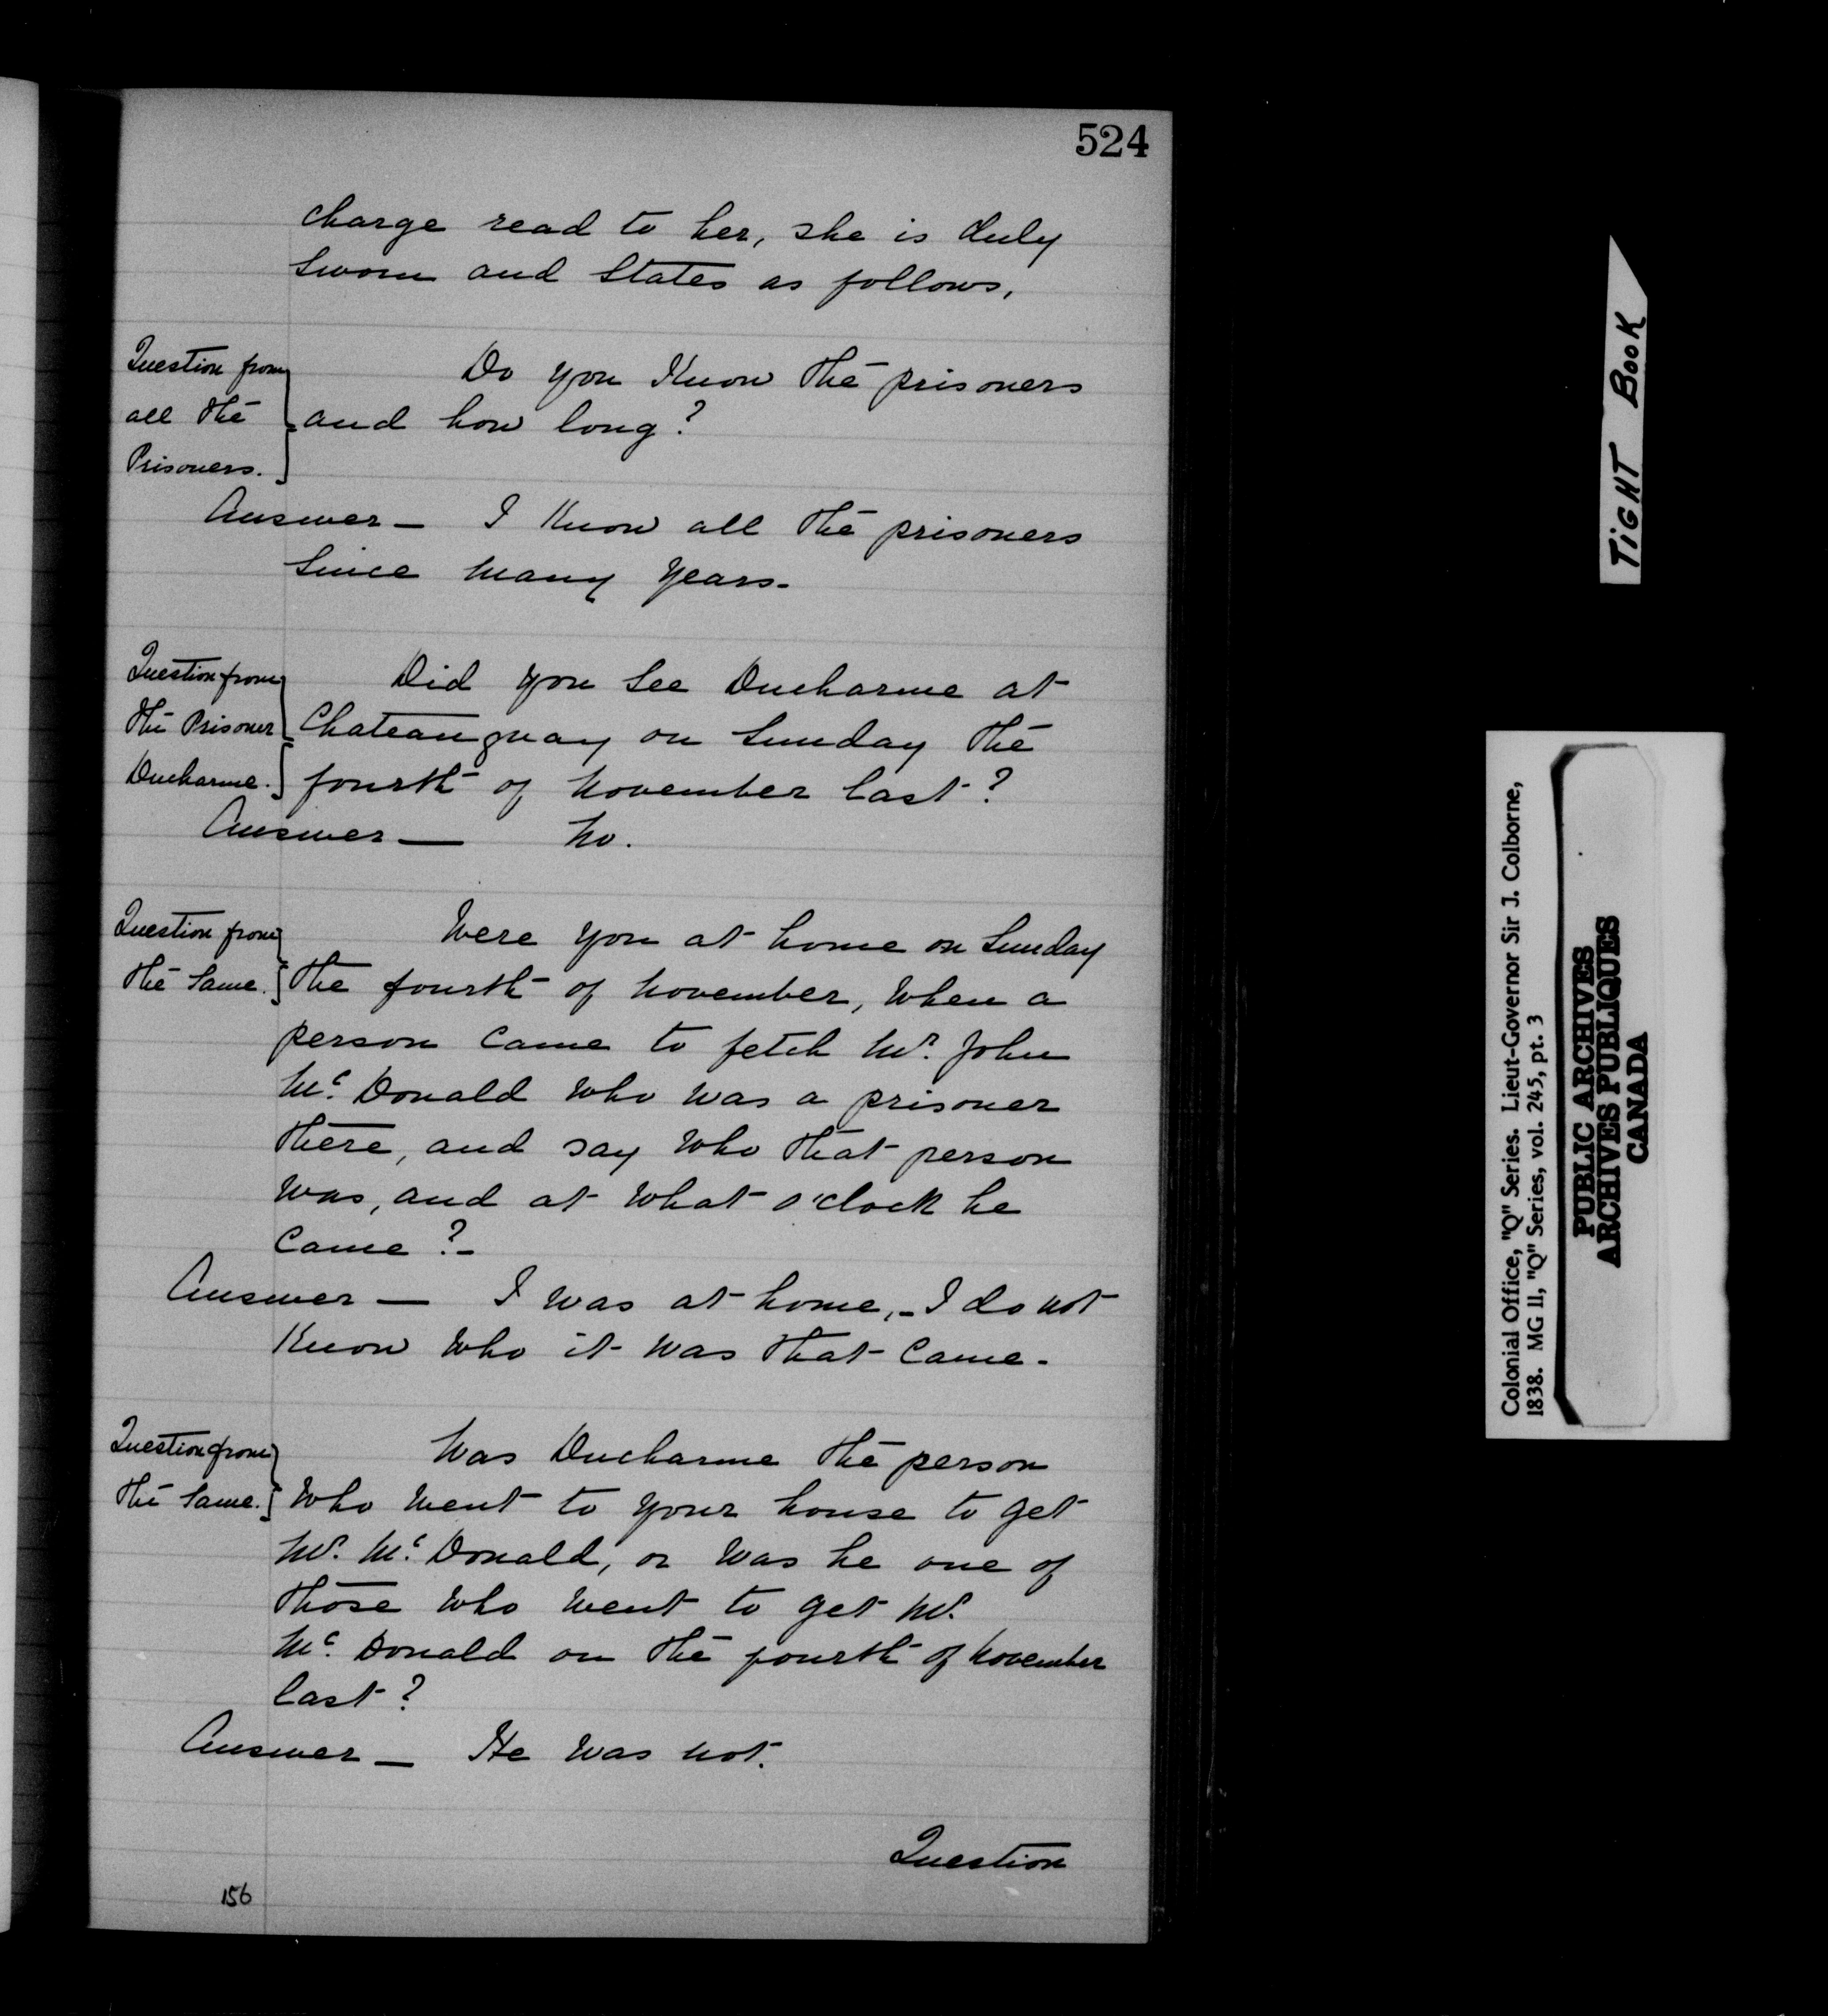 524
charge read to her, she is duly
sworn and States as follows,
Question from
all the
Prisoners.
Do you Know the prisoners
and how long?
Answer — I Know all the prisoners
Since many years.
Question from
the Prisoner
Ducharme.
Did you See Ducharme at
Chateauguay on Sunday the
fourth of November last?
Answer — No.
Question from
the Same.
Were you at home on Sunday
the fourth of November, when a
person Came to fetch Mr. John
Mc. Donald who was a prisoner
there, and say who that person
was, and at what o'clock he
Came?-
Answer — I was at home, - I do not
Know who it was that Came.
Question from
the Same.
Was Ducharme the person
who went to your house to get
Mr. Mc. Donald, or was he one of
those who went to get Mr.
Mc. Donald on the fourth of November
last?
Answer — He was not.
Question
156
TIGHT BOOK
Colonial Office, "Q" Series. Lieut-Governor Sir J. Colborne,
1838. MG 11, "Q" Series, vol. 245, pt. 3
PUBLIC ARCHIVES
ARCHIVES PUBLIQUES
CANADA